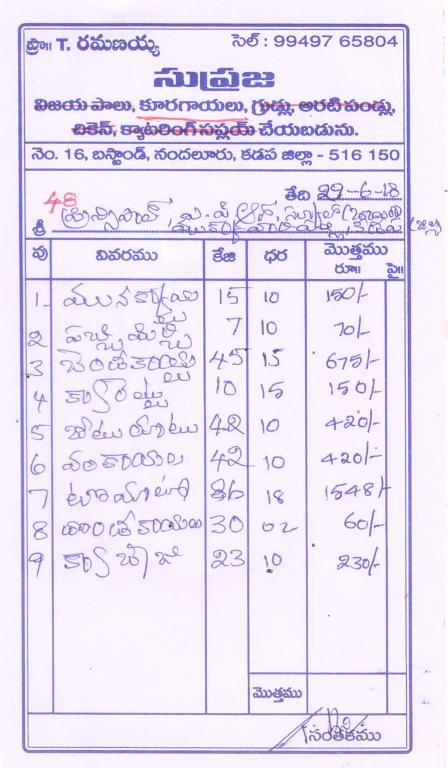 ప్రొ॥ T. రమణయ్య సెల్ : 99497 65804
సుప్రజ
విజయ పాలు, కూరగాయలు, గ్రుడ్లు, అరటి పండ్లు,
చికెన్, క్యాటరింగ్ సప్లయ్ చేయబడును.
నెం. 16, బస్టాండ్, నందలూరు, కడప జిల్లా - 516 150
48 తేది 29-6-18
శ్రీ ప్రిన్సిపాల్, ఎ.పి.ఆర్.
వు వివరము కేజి ధర మొత్తము రూ॥ పై॥
1 మునక్కాయలు 15 10 150/-
2 పచ్చిమిర్చి 7 10 70/-
3 బెండకాయలు 45 15 675/-
4 క్యారెట్లు 10 15 150/-
5 42 10 420/-
6 వంకాయలు 42 10 420/-
7 టొమాటా 86 18 1548/-
8 30 02 60/-
9 క్యాబేజి 23 10 230/-
మొత్తము
సంతకము